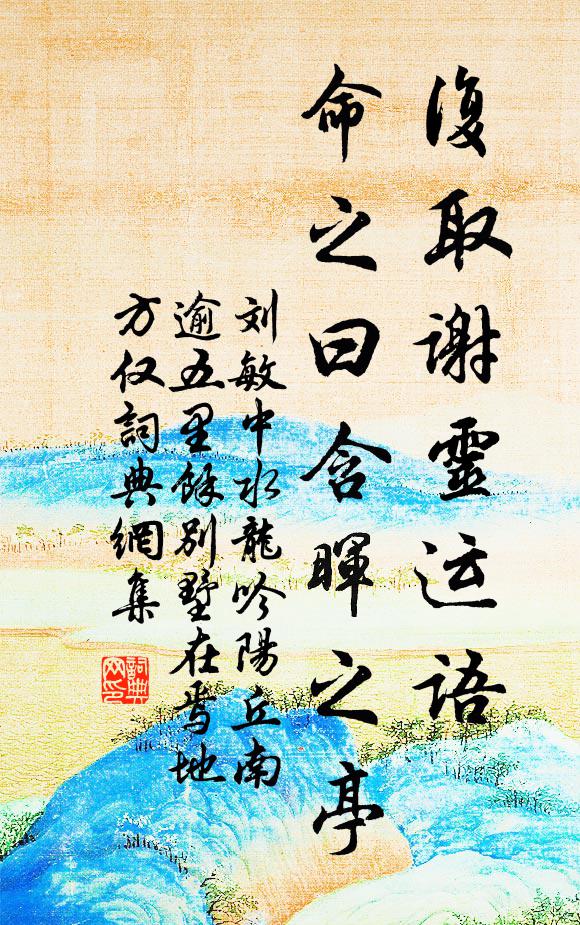 復取谢靈运語
命之曰含暉之亭
刘敏中水龍吟陽丘南
逾五里餘别墅在焉地
方仅詞典網集
詞典
网印